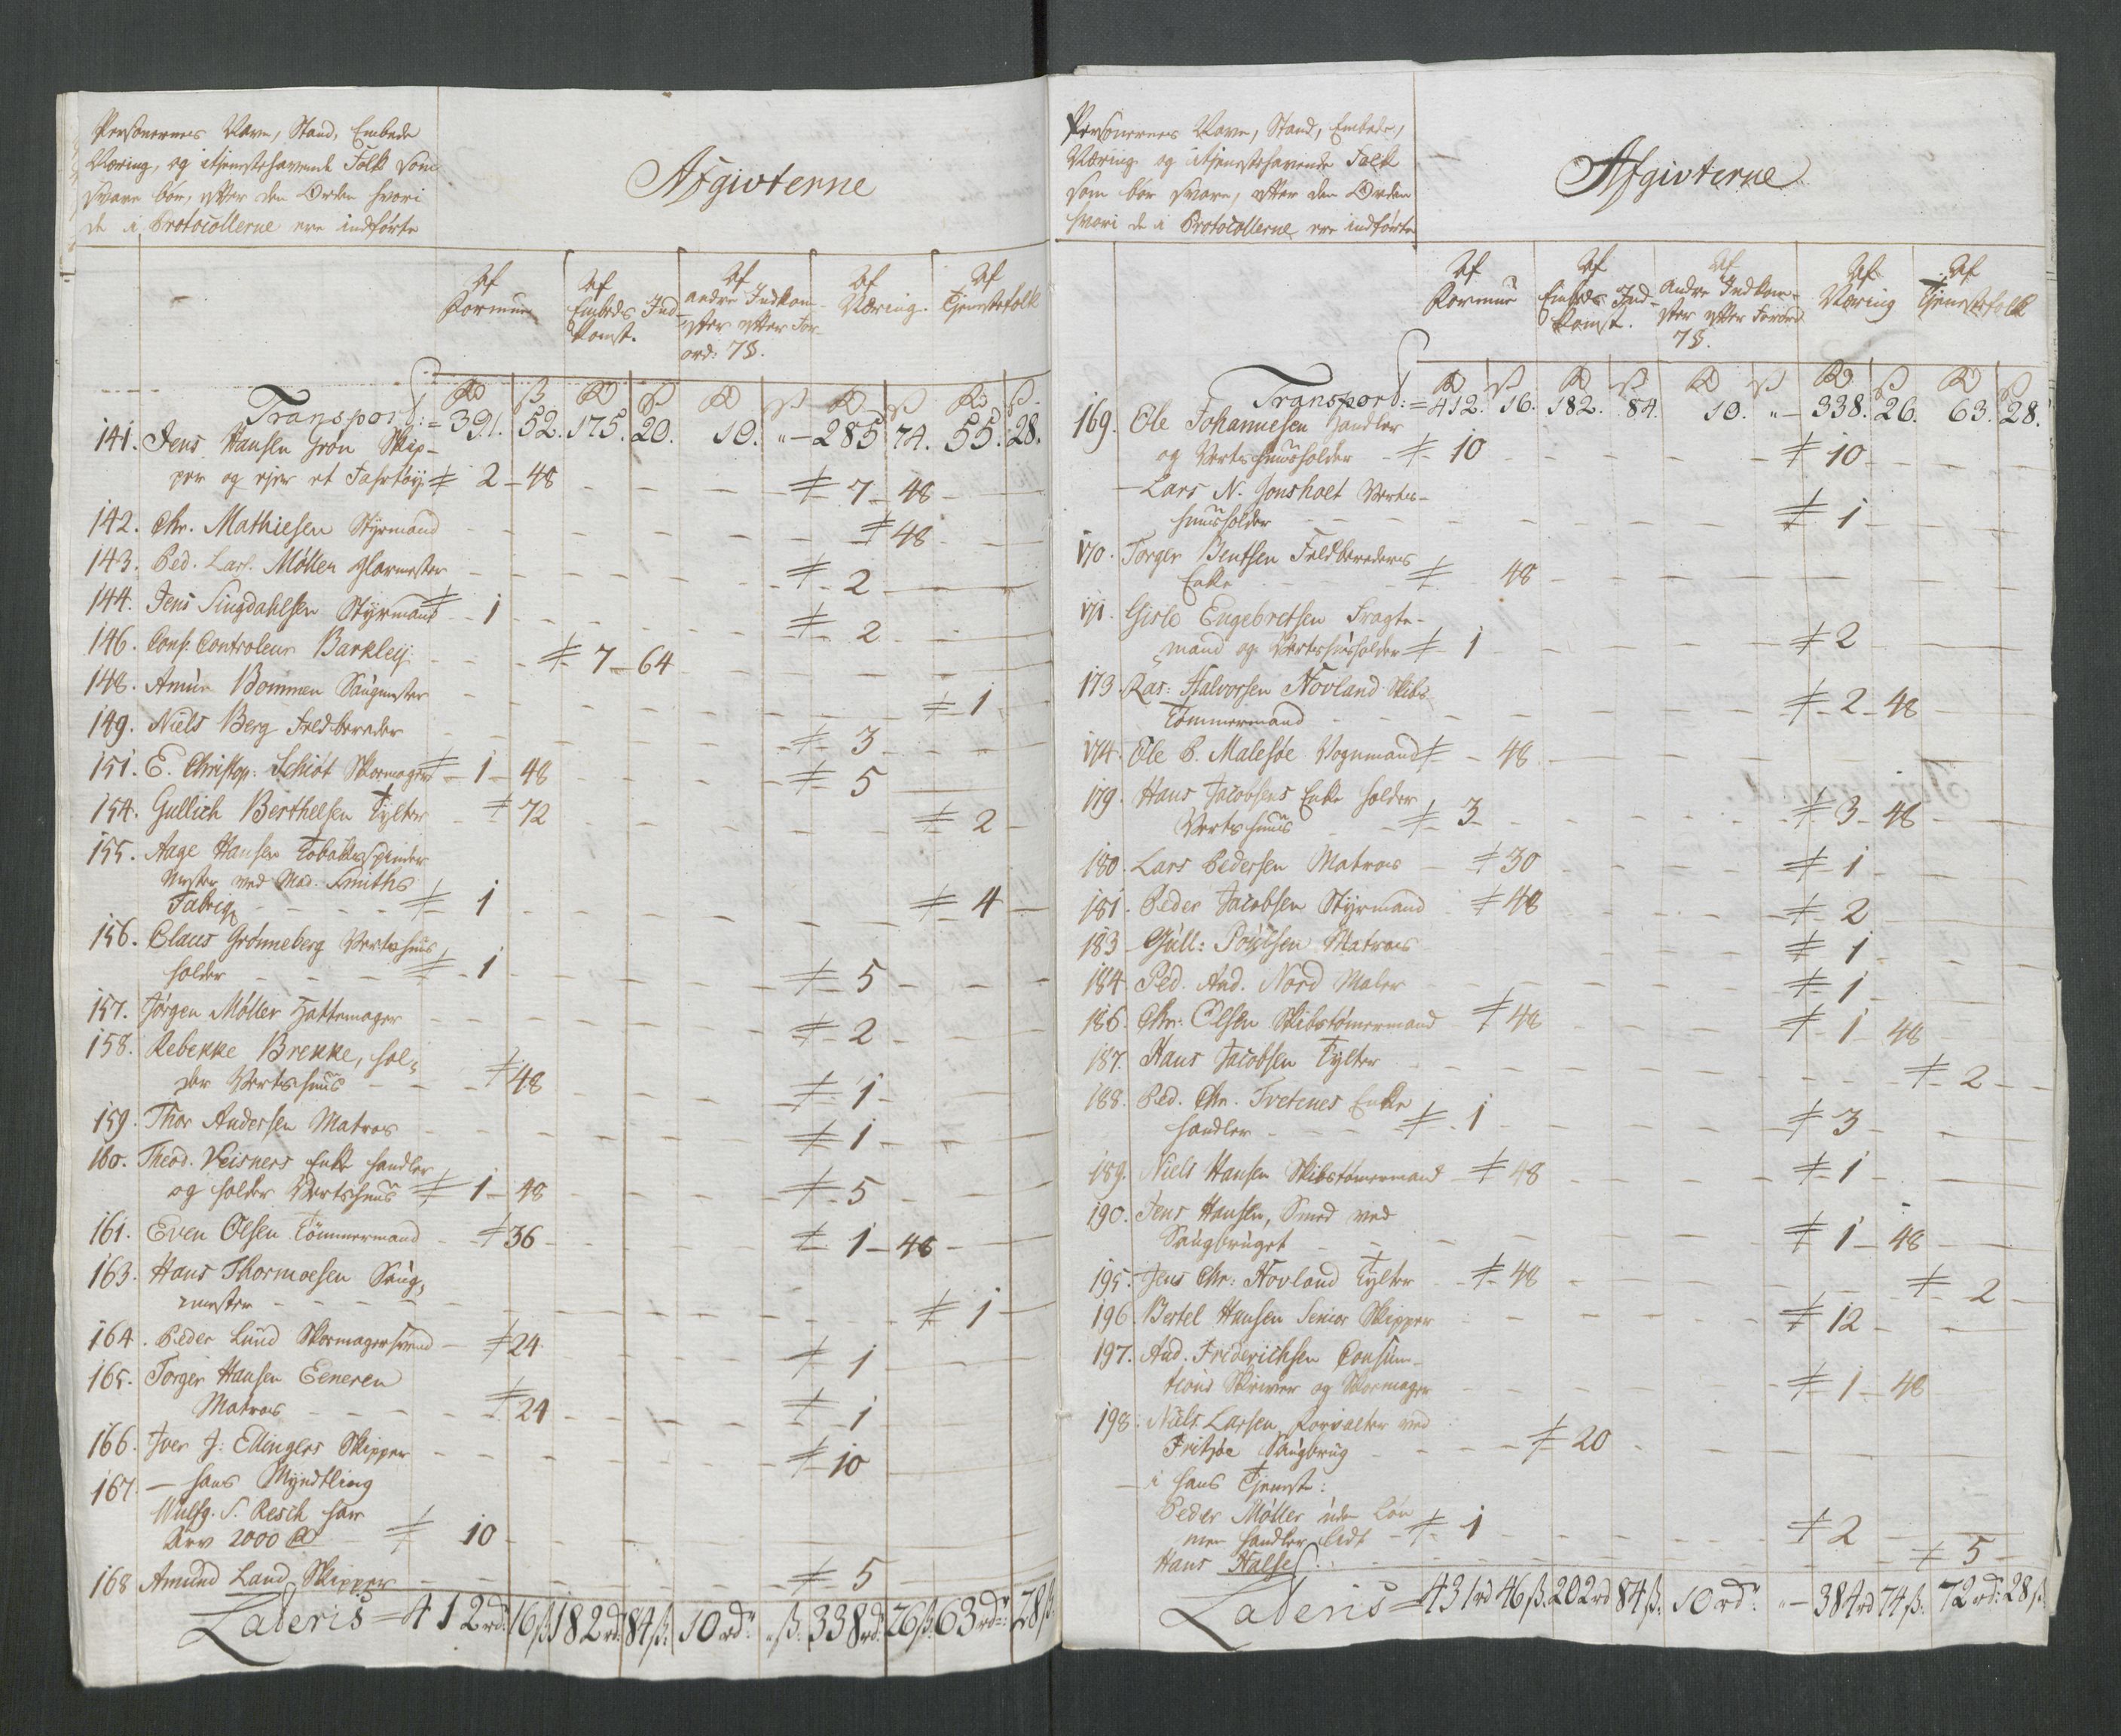 Personernes Navn, Stand, Embede
Næring, og i tjenestehavende Folk som
svare bør, efter den Orden hvori
de i Protocollerne ere indførte
Afgivterne
Af Formue
Af Embeds Indkomst.
Af andre Indkomster efter Forord: 7 §.
Af Næring.
Af Tjenestefolk
Rd ß Rd ß Rd ß Rd ß Rd ß
Transport: = 391. 52. 175. 20. 10. " — 285 74. 55. 28.
141. Jens Hansen Grøn Skip-
per og ejer et Fahrtøy ≠ 2 — 48 ≠ 7 — 48
142. Chr. Mathiesen Styrmand ≠ 48
143. Ped. Lars. Møller Glarmester ≠ 2
144. Jens Lingdahlsen Styrmand ≠ 1 ≠ 2
146. Cons. Controleur Barkley ≠ 7 — 64
148. Amun Bommen Saugmester ≠ 1
149. Niels Berg Feldbereder ≠ 3
151. E. Christop: Schiøt Skomager ≠ 1 — 48 ≠ 5
154. Gullich Berthelsen Tylter ≠ 72 ≠ 2
155. Aage Hansen Tobaksspinder
Mester ved Mad. Smiths
Fabriq ≠ 1 ≠ 4
156. Claus Grønneberg Vertshuus
holder ≠ 1 ≠ 5
157. Jørgen Møller Hattemager ≠ 2
158. Rebekke Brekke, hol-
der Vertshuus ≠ 48 ≠ 1
159. Thor Andersen Matros ≠ 1
160. Theod. Veisners Enke handler
og holder Vertshuus ≠ 1 — 48 ≠ 5
161. Even Olsen Tømmermand ≠ 36 ≠ 1 — 48
163. Hans Thormoesen Saug-
mester ≠ 1
164. Peder Lund Skomagersvend ≠ 24 ≠ 1
165. Torger Hansen Eeneren
Matros ≠ 24 ≠ 1
166. Iver J: Ellingers Skipper ≠ 10
167. — hans Myndtling
Wulfg. S. Resch har
Arv 2000 Rd ≠ 10
168 Amund Land Skipper ≠ 5
Lateris = 412 rd: 16 ß 182 rd: 84 ß: 10 rd: " ß: 338 rd: 26 ß: 63 rd: 28 ß.
Personernes Navn, Stand, Embede,
Næring og i tjenestehavende Folk
som bør svare, efter den Orden
hvori de i Protocollerne ere indførte
Afgivterne
Af Formue
Af Embeds Indkomst.
Af Andre Indkomster efter Forord 7 §.
Af Næring
Af Tjenestefolk
Rd ß Rd ß Rd ß Rd ß Rd ß
Transport: = 412. 16. 182. 84. 10. " — 338. 26. 63. 28.
169. Ole Johannesen Handler
og Vertshuusholder ≠ 10 ≠ 10
— Lars N. Gonsholt Verts-
huusholder ≠ 1
170. Torger Bentsen Feldbereders
Enke ≠ 48
171. Gisle Engebretsen Fragte-
mand og Vertshusholder ≠ 1 ≠ 2
173. Ras: Halvorsen Hovland Skibs
Tømmermand ≠ 2 — 48
174. Ole B. Malesøe Vognmand ≠ 48
179. Hans Jacobsens Enke holder
Vertshuus ≠ 3 ≠ 3 — 48
180. Lars Pedersen Matros ≠ 30 ≠ 1
181. Peder Jacobsen Styrmand ≠ 48 ≠ 2
183 Gull: Poulsen Matros ≠ 1
184. Ped. And. Nord Maler ≠ 1
186. Chr: Olsen Skibstømermand ≠ 48 ≠ 1 48
187. Hans Jacobsen Tylter ≠ 2
188. Ped. Chr. Tvetenes Enke
handler ≠ 1 ≠ 3
189. Niels Hansen Skibstømermand ≠ 48 ≠ 1
190. Jens Hansen, Smed ved
Saugbruget ≠ 1 — 48
195. Jens Chr: Hovland Tylter ≠ 48 ≠ 2
196. Bertel Hansen Senior Skipper ≠ 12
197. And. Friderichsen Consum-
tions Skriver og Skomager ≠ 1 — 48
198. Niels Larsen Forvalter ved
Fritzøe Saugbrug ≠ 20
— i hans Tjeneste:
Peder Møller uden Løn
men handler lidt ≠ 1 ≠ 2
Hans Halse ≠ 5
Lateris = 431 rd 46 ß. 202 rd 84 ß: 10 rd: " — 384 rd 74 ß: 72 rd: 28 ß: